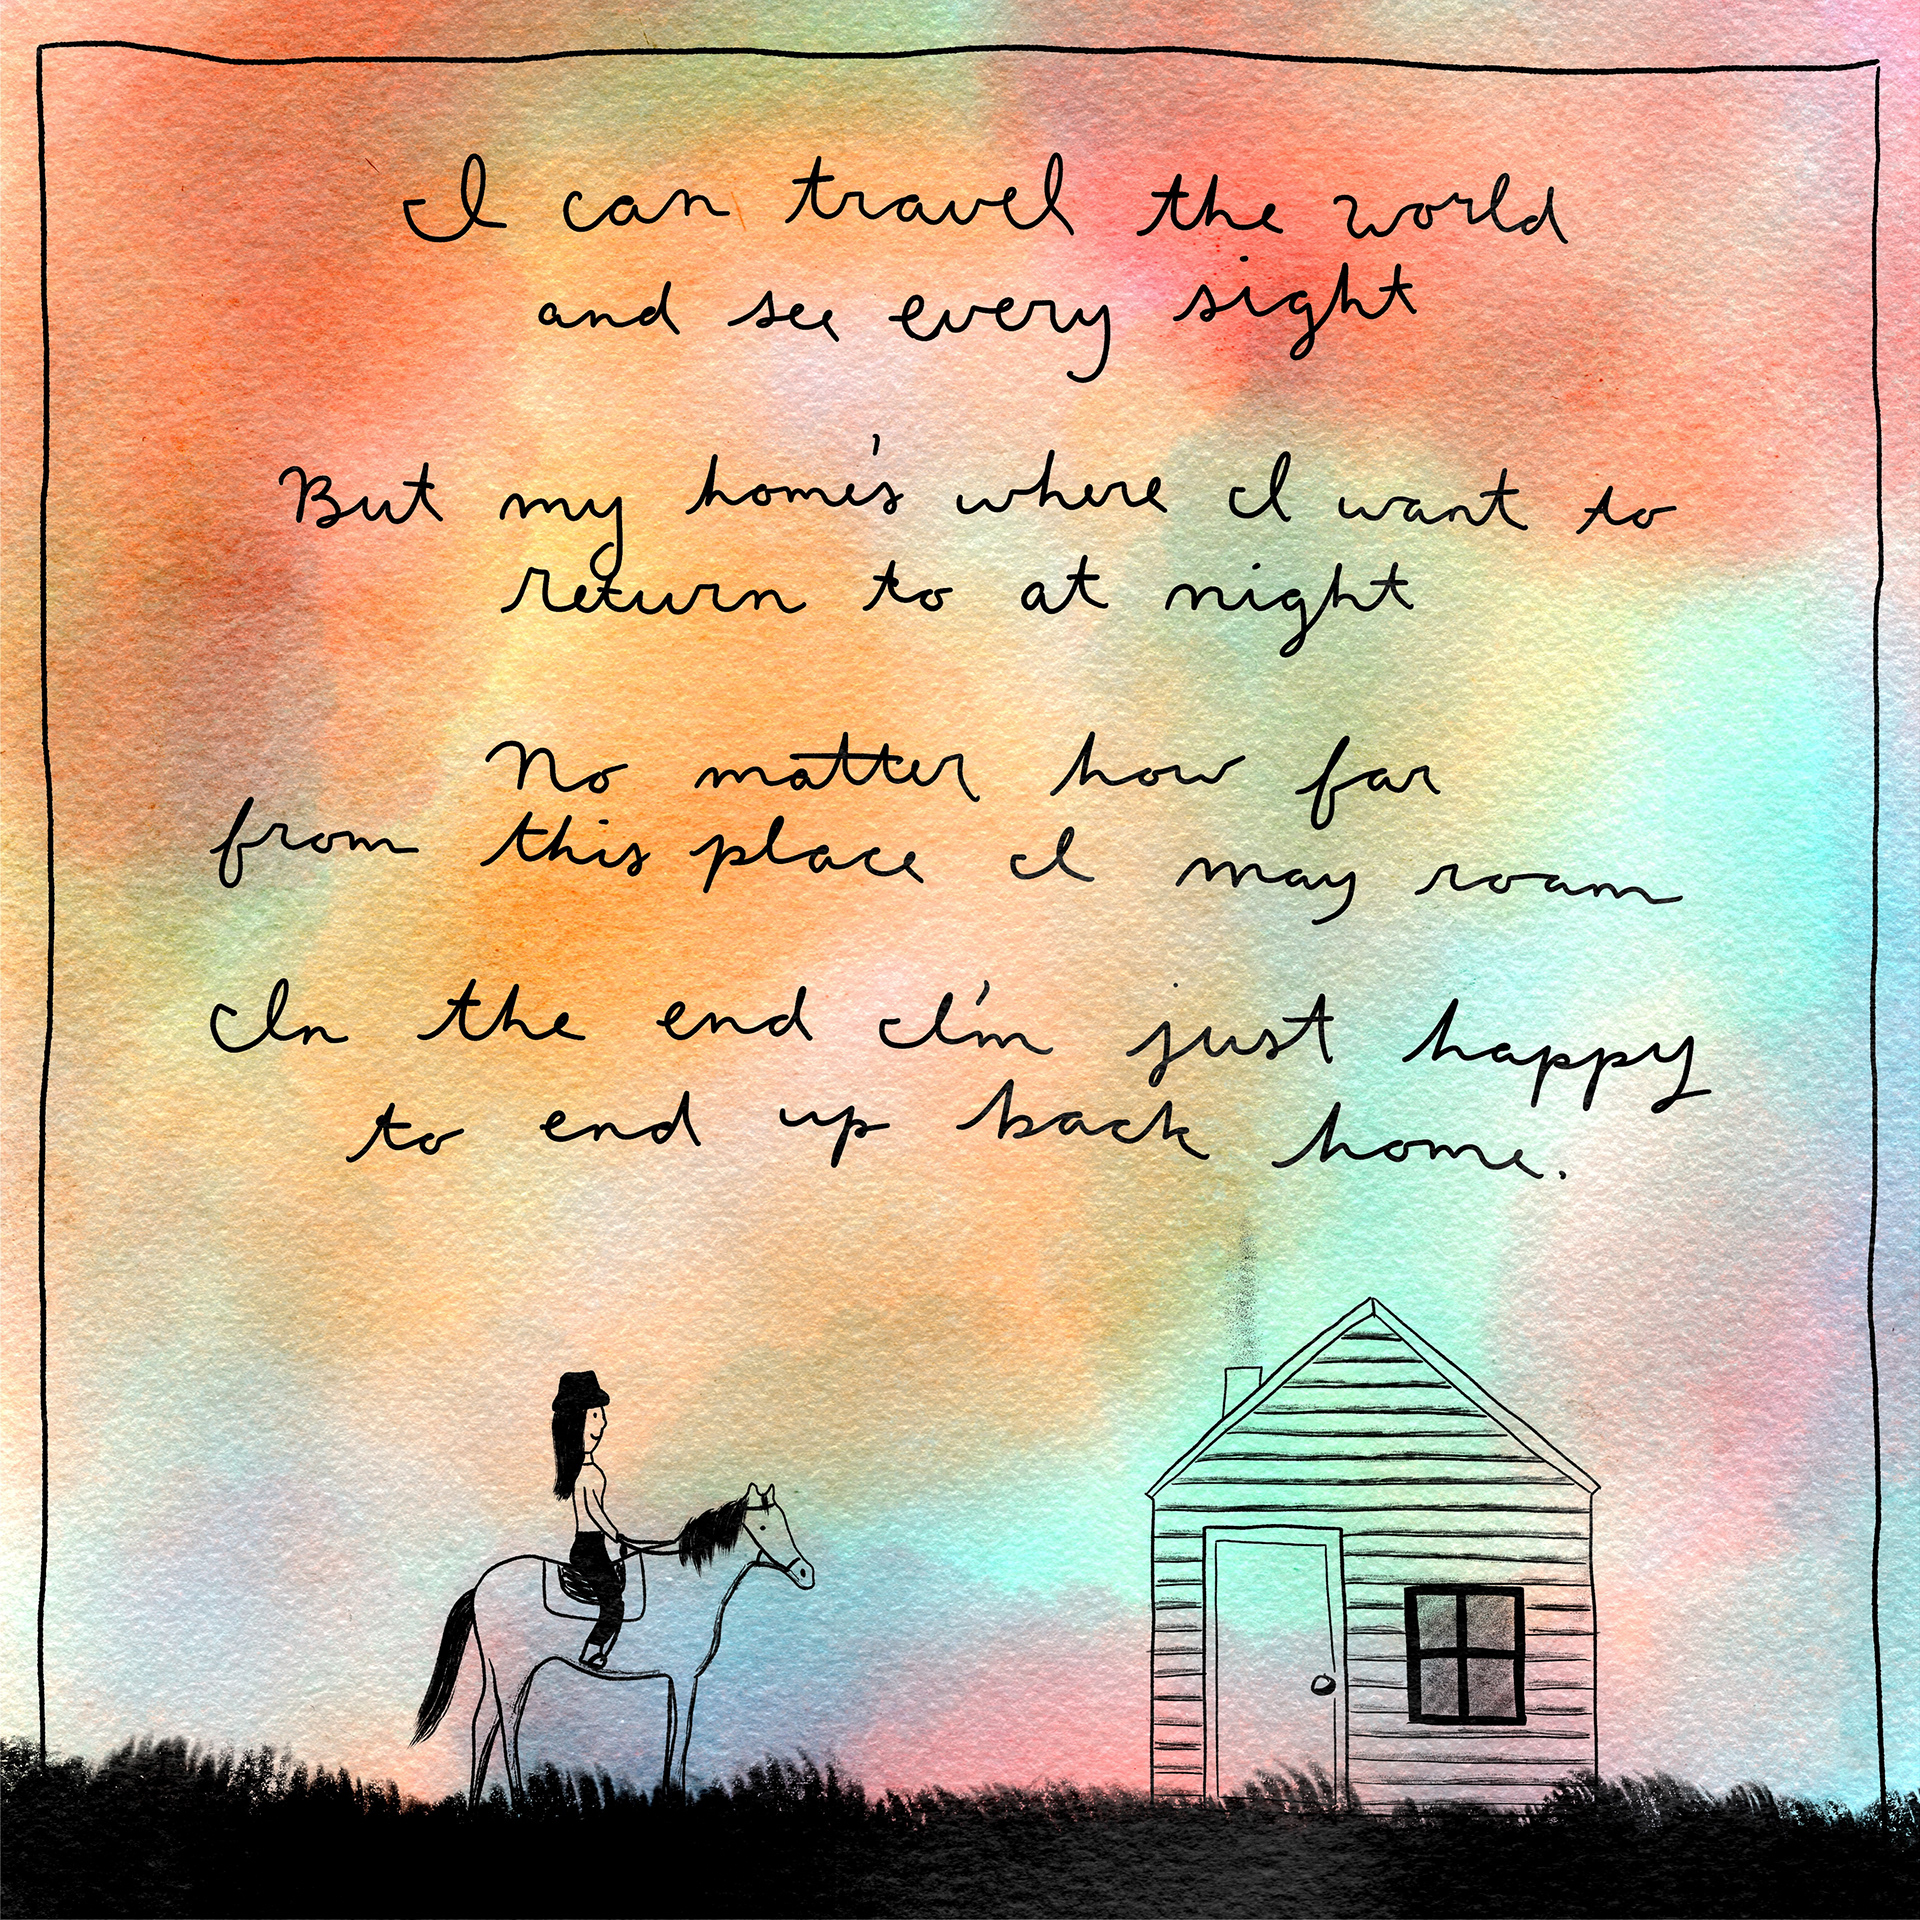 I can travel the world
and see every sight
But my home's where I want to
return to at night
No matter how far
from this place I may roam
In the end I'm just happy
to end up back home.